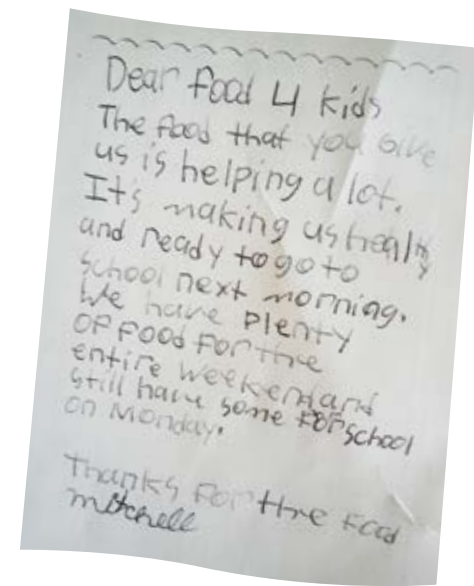 Dear food 4 kids
The food that you Give
us is helping a lot.
It's making us healthy
and ready to go to
school next morning.
We have plenty
of food for the
entire weekend and
still have some for school
on Monday.
Thanks for the food
mitchell